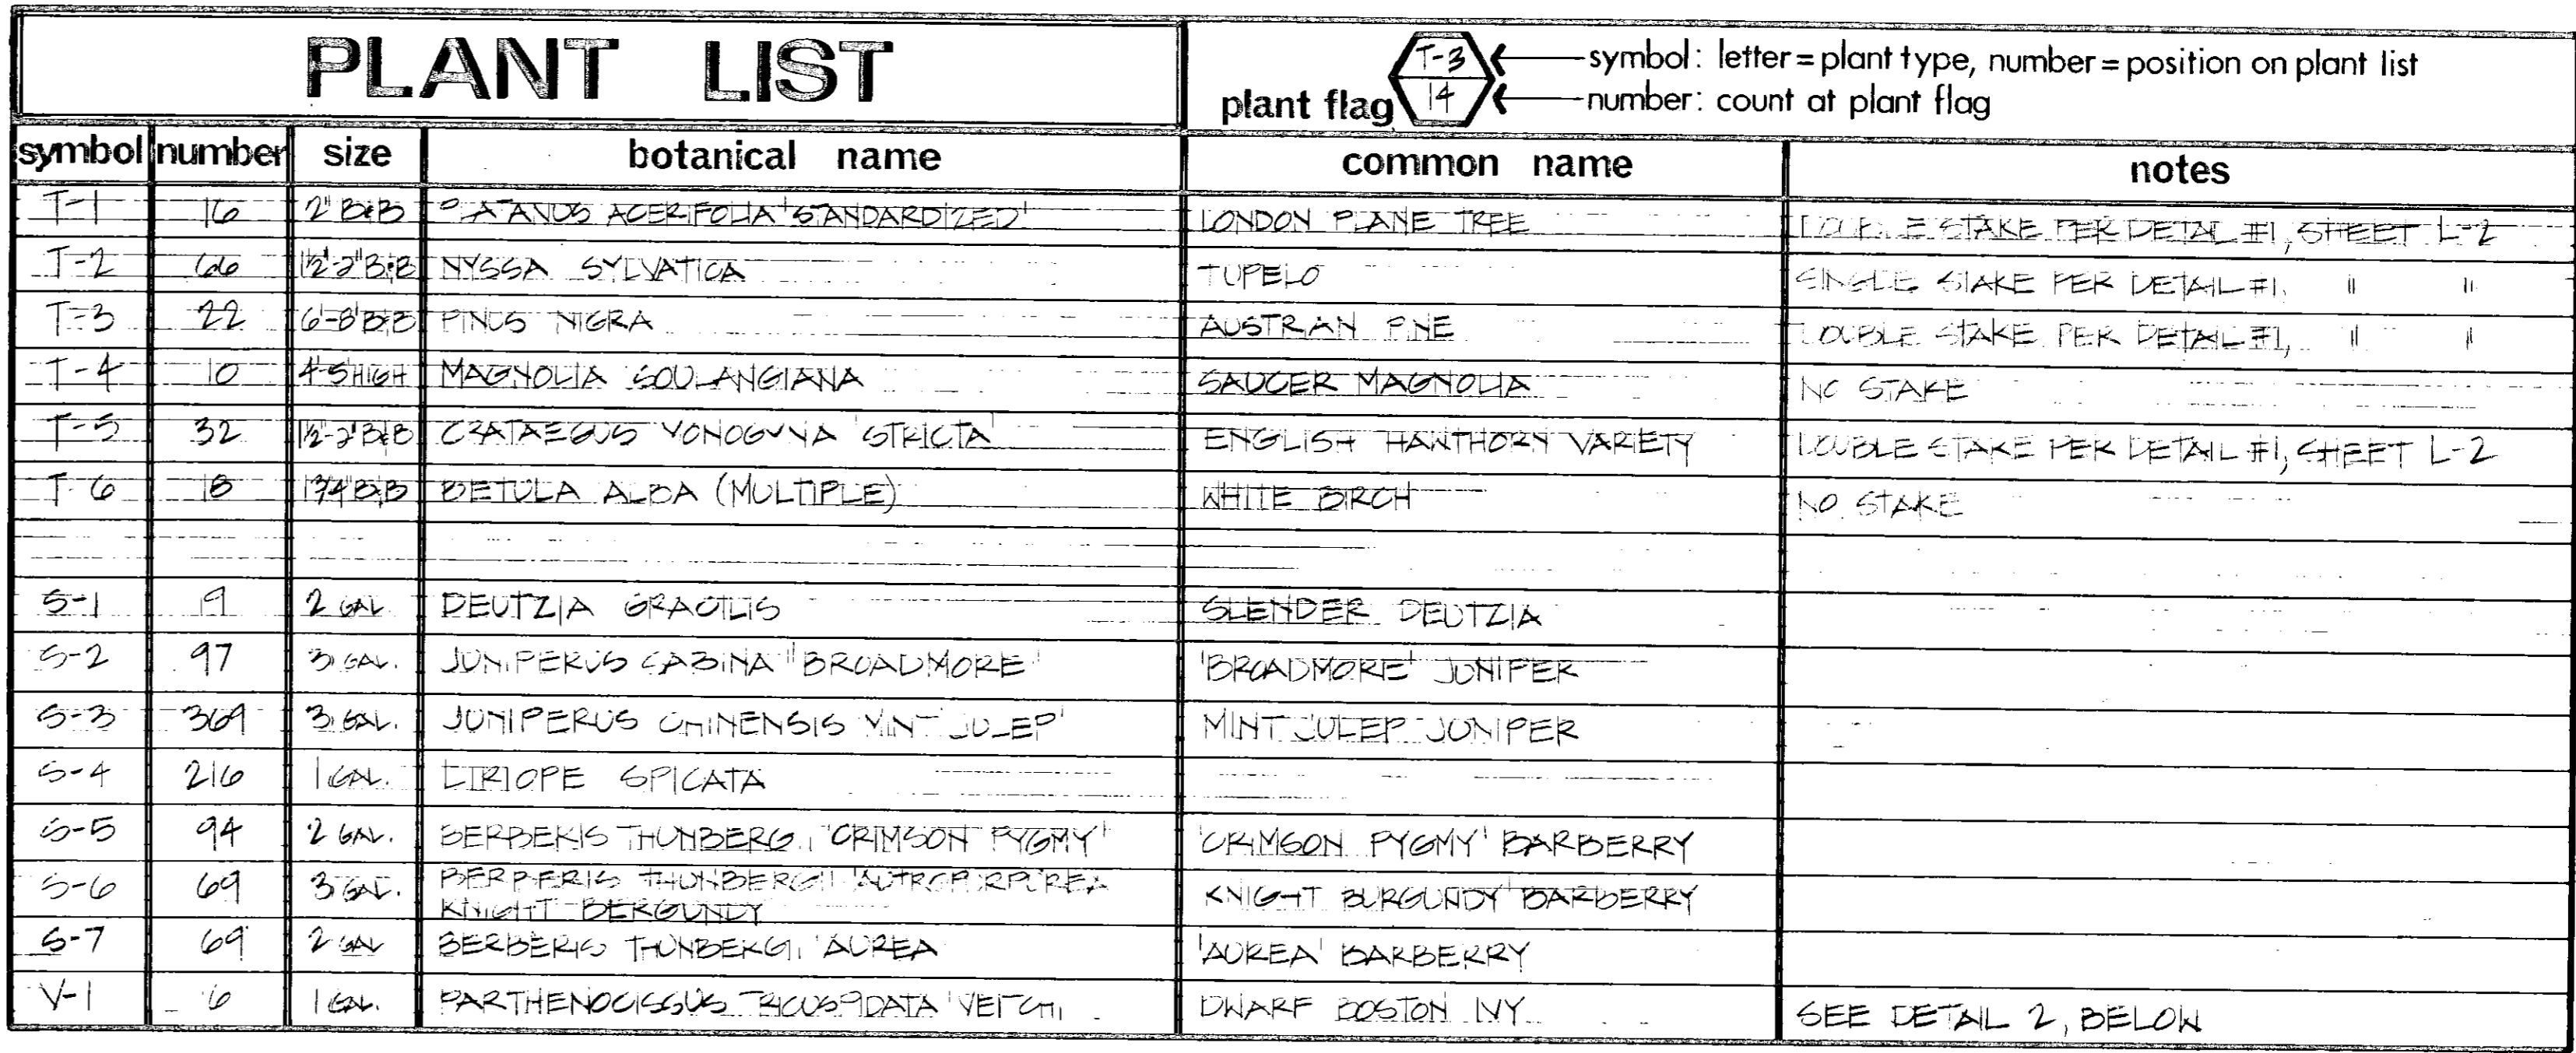 PLANT LIST
plant flag
T-3
14
symbol: letter=plant type, number=position on plant list
number: count at plant flag
symbol number size botanical name common name notes
T-1 16 2" B&B PLATANUS ACERIFOLIA 'STANDARDIZED' LONDON PLANE TREE DOUBLE STAKE PER DETAIL #1, SHEET L-2
T-2 66 1½"-2" B&B NYSSA SYLVATICA TUPELO SINGLE STAKE PER DETAIL #1, " "
T-3 22 6'-8' B&B PINUS NIGRA AUSTRIAN PINE DOUBLE STAKE PER DETAIL #1, " "
T-4 10 4'-5' HIGH MAGNOLIA SOULANGIANA SAUCER MAGNOLIA NO STAKE
T-5 32 1½"-2" B&B CRATAEGUS MONOGYNA 'STRICTA' ENGLISH HAWTHORN VARIETY DOUBLE STAKE PER DETAIL #1, SHEET L-2
T-6 18 1¾" B&B BETULA ALBA (MULTIPLE) WHITE BIRCH NO STAKE
S-1 9 2 GAL DEUTZIA GRACILIS SLENDER DEUTZIA
S-2 97 3 GAL. JUNIPERUS SABINA 'BROADMORE' 'BROADMORE' JUNIPER
S-3 369 3 GAL. JUNIPERUS CHINENSIS 'MINT JULEP' MINT JULEP JUNIPER
S-4 216 1 GAL. LIRIOPE SPICATA
S-5 94 2 GAL. BERBERIS THUNBERGI 'CRIMSON PYGMY' 'CRIMSON PYGMY' BARBERRY
S-6 69 3 GAL. BERBERIS THUNBERGII 'AUTROPURPUREA KNIGHT BURGUNDY' BARBERRY
KNIGHT BERGUNDY
S-7 69 2 GAL BERBERIS THUNBERGI 'AUREA 'AUREA' BARBERRY
V-1 6 1 GAL. PARTHENOCISSUS TRICUSPIDATA 'VEITCHI DWARF BOSTON IVY SEE DETAIL 2, BELOW